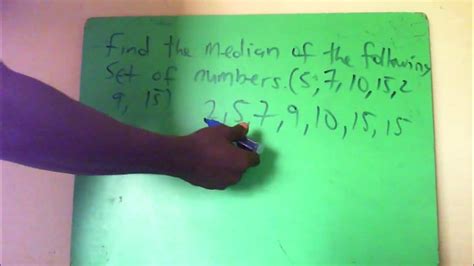 find the median of the following
set of numbers. (5, 7, 10, 15, 2
9, 15)
2, 5, 7, 9, 10, 15, 15